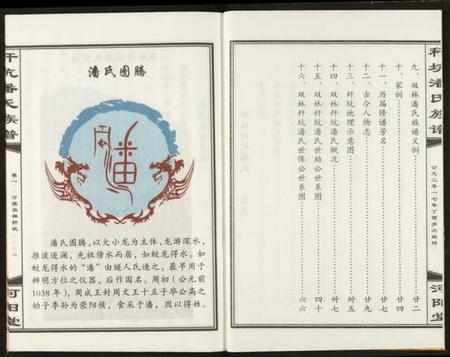 潘氏图腾
潘氏图腾,以大小龙为主体,龙游深水,
推波逐澜,先祖傍水而居,如蛟龙得水。如
蛟龙得水的“潘”由燧人氏造之,最早用于
辨明方位之仪器,后作国名。周初(公元前
1038年),周成王封周文王十五子毕公高之
幼子季孙为荥阳候,食采于潘,因以得姓。
秆坑潘氏族谱
卷一
河阳堂
秆坑潘氏族谱
公元二零一七年丁酉岁次续修
河阳堂
九、双林潘氏族谱义例……廿二
十、家训……廿四
十一、历届修谱芳名……廿八
十二、古今人物志……廿九
十三、秆坑地理示意图……卅五
十四、双林秆坑潘氏概况……卅六
十五、双林秆坑潘氏世助公世系图……四十
十六、双林秆坑潘氏世俸公世系图……六六